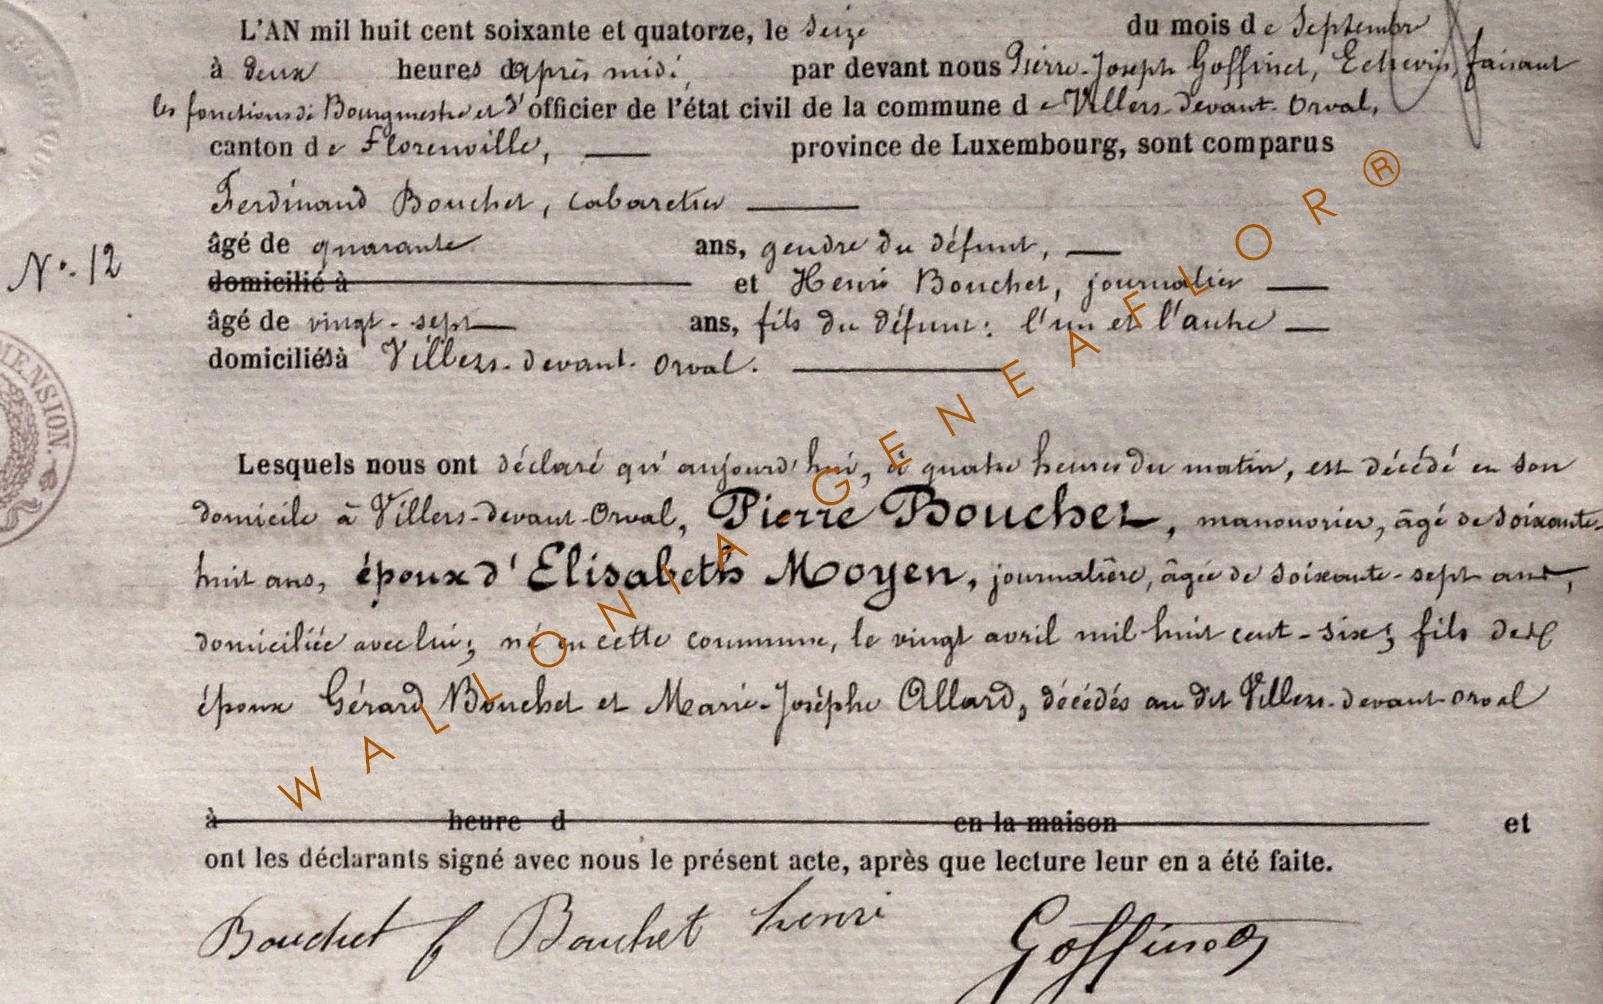 L'AN mil huit cent soixante et quatorze, le seize du mois de Septembre
à deux heures d'après midi, par devant nous Pierre-Joseph Goffinet, Echevin, faisant
les fonctions de Bourgmestre et d'officier de l'état civil de la commune de Villers-devant-Orval,
canton de Florenville, province de Luxembourg, sont comparus
Ferdinand Bouchet, cabaretier
âgé de quarante ans, gendre du défunt,
N°. 12
domicilié à et Henri Bouchet, journalier
âgé de vingt-sept ans, fils du défunt; l'un et l'autre
domiciliés à Villers-devant-Orval.
Lesquels nous ont déclaré qu'aujourd'hui, à quatre heures du matin, est décédé en son
domicile à Villers-devant-Orval, Pierre Bouchet, manouvrier, âgé de soixante-
huit ans, époux d'Elisabeth Moyen, journalière, âgée de soixante-sept ans,
domiciliée avec lui; né en cette commune, le vingt avril mil huit cent-six; fils des
époux Gérard Bouchet et Marie-Josèphe Allard, décédés au dit Villers-devant-Orval
à heure d en la maison et
ont les déclarants signé avec nous le présent acte, après que lecture leur en a été faite.
Bouchet f Bouchet henri Goffinet
WALLONIA GENEAFLOR ®